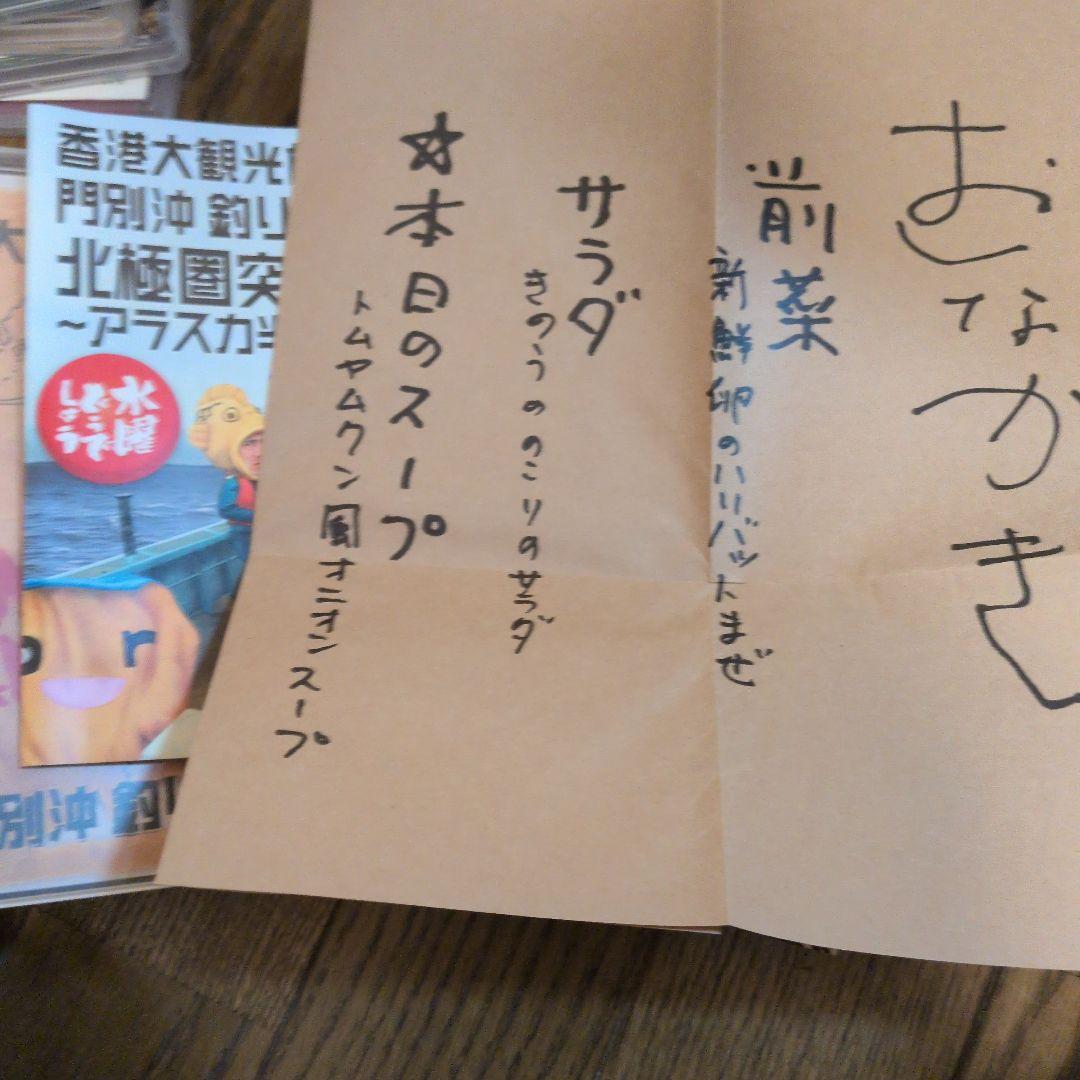 おしながき
前菜
新鮮卵のハリバットまぜ
サラダ
きのうののこりのサラダ
☆本日のスープ
トムヤムクン風オニオンスープ
香港大観光
門別沖 釣り
北極圏突
~アラスカ半
水曜
どうで
しょう
or
別沖 釣り